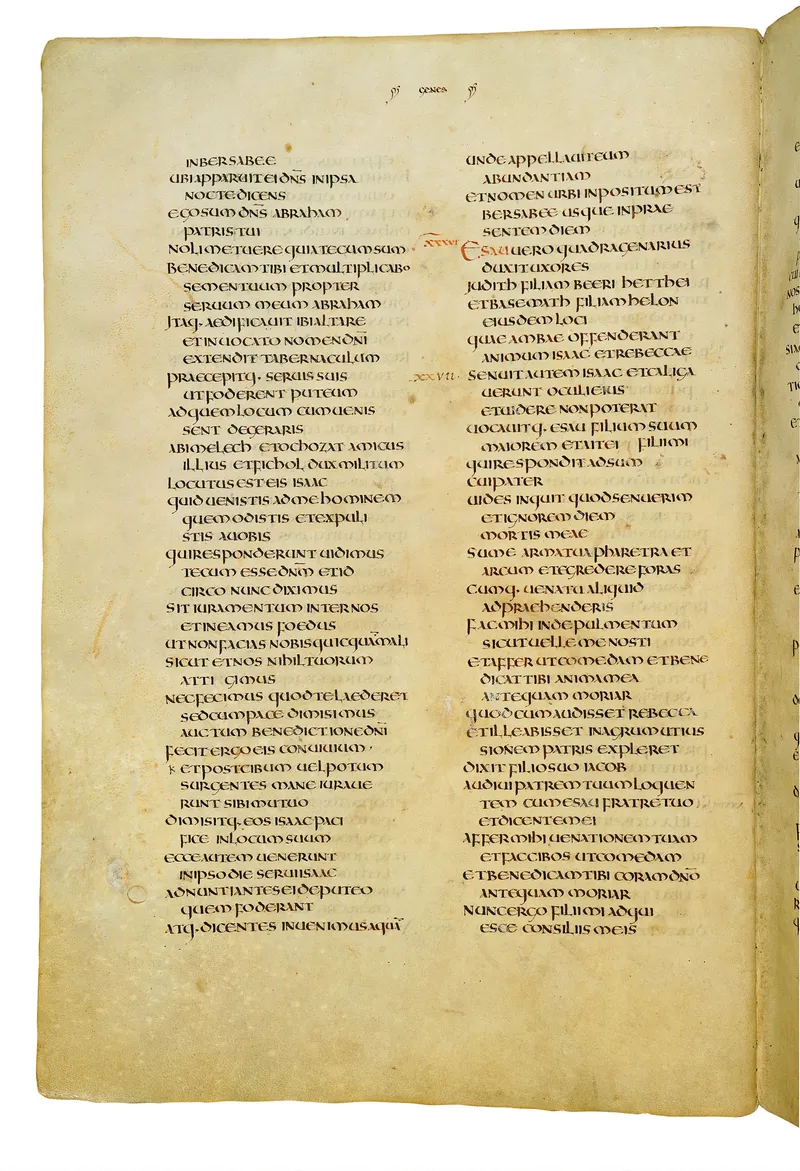 GENES
IN BERSABEE
UBI APPARUIT EI DN̅S IN IPSA
NOCTE DICENS
EGO SUM DN̅S ABRAHAM
PATRIS TUI
NOLI METUERE QUIA TECUM SUM
BENEDICAM TIBI ET MULTIPLICABO
SEMEN TUUM PROPTER
SERUUM MEUM ABRAHAM
ITAQ· AEDIFICAUIT IBI ALTARE
ET INUOCATO NOMEN DN̅I
EXTENDIT TABERNACULUM
PRAECEPITQ· SERUIS SUIS
UT FODERENT PUTEUM
AD QUEM LOCUM CUM UENIS
SENT DE GERARIS
ABIMELECH ET OCHOZAT AMICUS
ILLIUS ET FICHOL DUX MILITUM
LOCUTUS EST EIS ISAAC
QUID UENISTIS AD ME HOMINEM
QUEM ODISTIS ET EXPULI
STIS A UOBIS
QUI RESPONDERUNT UIDIMUS
TECUM ESSE DN̅M ET ID
CIRCO NUNC DIXIMUS
SIT IURAMENTUM INTER NOS
ET INEAMUS FOEDUS
UT NON FACIAS NOBIS QUICQUA̅M MALI
SICUT ET NOS NIHIL TUORUM
ATTI GIMUS
NEC FECIMUS QUOD TE LAEDERET
SED CUM PACE DIMISIMUS
AUCTUM BENEDICTIONE DN̅I
FECIT ERGO EIS CONUIUIUM·
ET POST CIBUM UEL POTUM
SURGENTES MANE IURAUE
RUNT SIBI MUTUO
DIMISITQ· EOS ISAAC PACI
FICE IN LOCUM SUUM
ECCE AUTEM UENERUNT
IN IPSO DIE SERUI ISAAC
ADNUNTIANTES EI DE PUTEO
QUEM FODERANT
ATQ· DICENTES INUENIMUS AQUA̅
UNDE APPELLAUIT EUM
ABUNDANTIAM
ET NOMEN URBI INPOSITUM EST
BERSABEE USQUE IN PRAE
SENTEM DIEM
XXXVI ESAU UERO QUADRAGENARIUS
DUXIT UXORES
IUDITH FILIAM BEERI HETTHEI
ET BASEMATH FILIAM HELON
EIUSDEM LOCI
QUAE AMBAE OFFENDERANT
ANIMUM ISAAC ET REBECCAE
XXXVII· SENUIT AUTEM ISAAC ET CALIGA
UERUNT OCULI EIUS
ET UIDERE NON POTERAT
UOCAUITQ· ESAU FILIUM SUUM
MAIOREM ET AIT EI FILI MI
QUI RESPONDIT ADSUM
CUI PATER
UIDES INQUIT QUOD SENUERIM
ET IGNOREM DIEM
MORTIS MEAE
SUME ARMA TUA PHARETRA ET
ARCUM ET EGREDERE FORAS
CUMQ· UENATU ALIQUID
ADPRAEHENDERIS
FAC MIHI INDE PULMENTUM
SICUT UELLE ME NOSTI
ET AFFER UT COMEDAM ET BENE
DICAT TIBI ANIMA MEA
ANTEQUAM MORIAR
QUOD CUM AUDISSET REBECCA
ET ILLE ABISSET IN AGRUM UT IUS
SIONEM PATRIS EXPLERET
DIXIT FILIO SUO IACOB
AUDIUI PATREM TUUM LOQUEN
TEM CUM ESAU FRATRE TUO
ET DICENTEM EI
AFFER MIHI UENATIONEM TUAM
ET FAC CIBOS UT COMEDAM
ET BENEDICAM TIBI CORAM DN̅O
ANTEQUAM MORIAR
NUNC ERGO FILI MI ADQUI
ESCE CONSILIIS MEIS